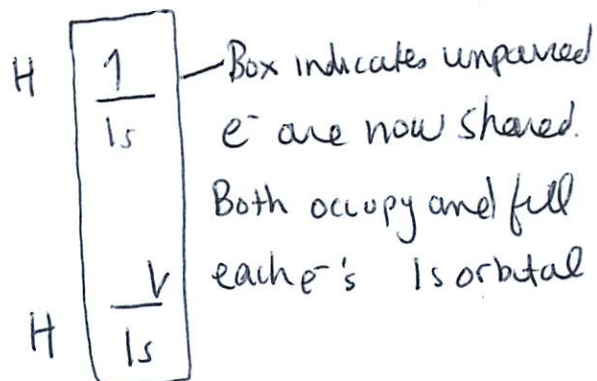 H 1 Box indicates unpaired
1s e⁻ are now shared.
Both occupy and fill
each e⁻'s 1s orbital
H 1s